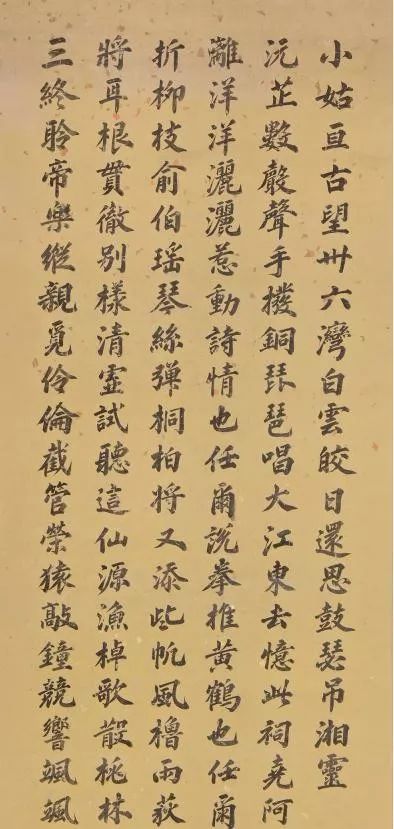 小姑亘古望卅六灣白雲皎日還思鼓瑟吊湘靈
沅芷數聲手撥銅琵琶唱大江東去憶此祠堯阿
離洋洋灑灑惹動詩情也任爾說拳推黃鶴也任爾
折柳枝俞伯瑤琴絲彈桐柏將又添些帆風櫓雨荻
將耳根貫徹別樣清霊試聽這仙源漁棹歌散桃林
三終聆帝樂縱親覓伶倫截管榮猿敲鐘競響颯颯